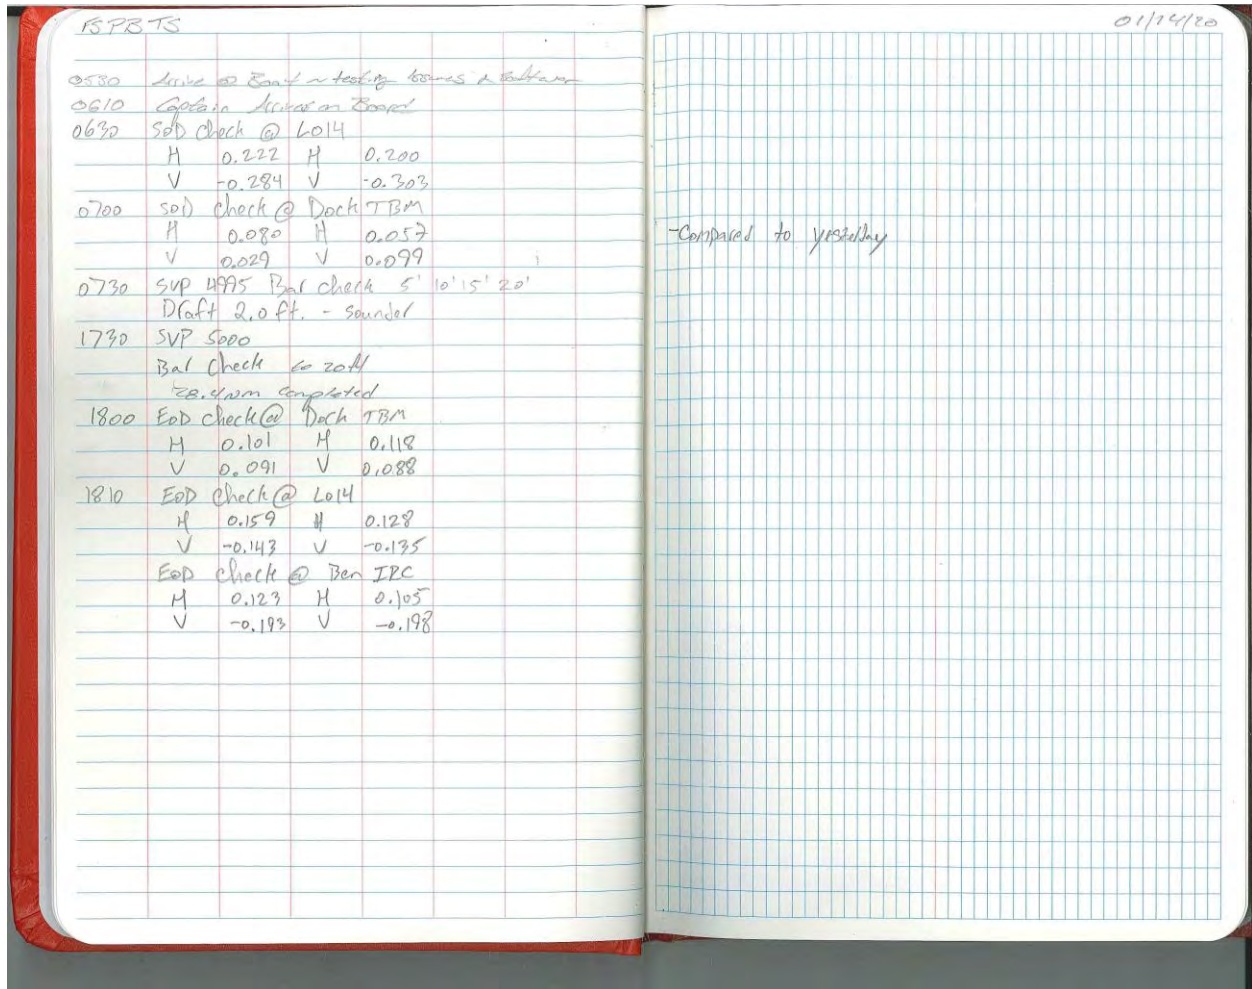 FSPB TS
01/24/20
0530 Arrive @ Boat ~ testing & Software
0610 Captain Arrives on Board
0630 SoD check @ L014
H 0.222 H 0.200
V -0.284 V -0.303
0700 SoD check @ Dock TBM
H 0.080 H 0.057
-Compared to yesterday
V 0.029 V 0.099
0730 SVP 4995 Bar check 5' 10' 15' 20'
Draft 2.0 ft. - Sounder
1730 SVP 5000
Bar Check to 20ft
28.4 nm Completed
1800 EoD check @ Dock TBM
H 0.101 H 0.118
V 0.091 V 0.088
1810 EoD Check @ L014
H 0.159 H 0.128
V -0.143 V -0.135
EoD check @ Ben IRC
H 0.123 H 0.105
V -0.193 V -0.198